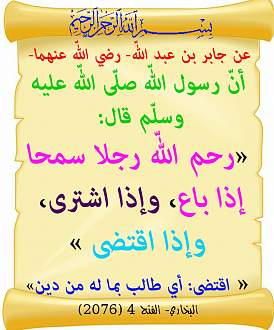 بسم الله الرحمن الرحيم
عن جابر بن عبد الله- رضي الله عنهما-
أنّ رسول الله صلّى الله عليه
وسلّم قال:
«رحم الله رجلا سمحا
إذا باع، وإذا اشترى،
وإذا اقتضى »
« اقتضى: أي طالب بما له من دين»
البخاري- الفتح 4 (2076)